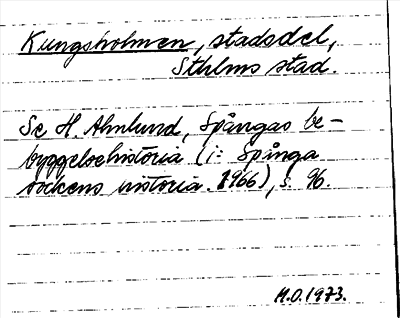 Kungsholmen, stadsdel,
Sthlms stad.
Se H. Ahnlund, Spångas be-
byggelsehistoria (i: Spånga
sockens historia. 1966), s. 96.
H.O. 1973.